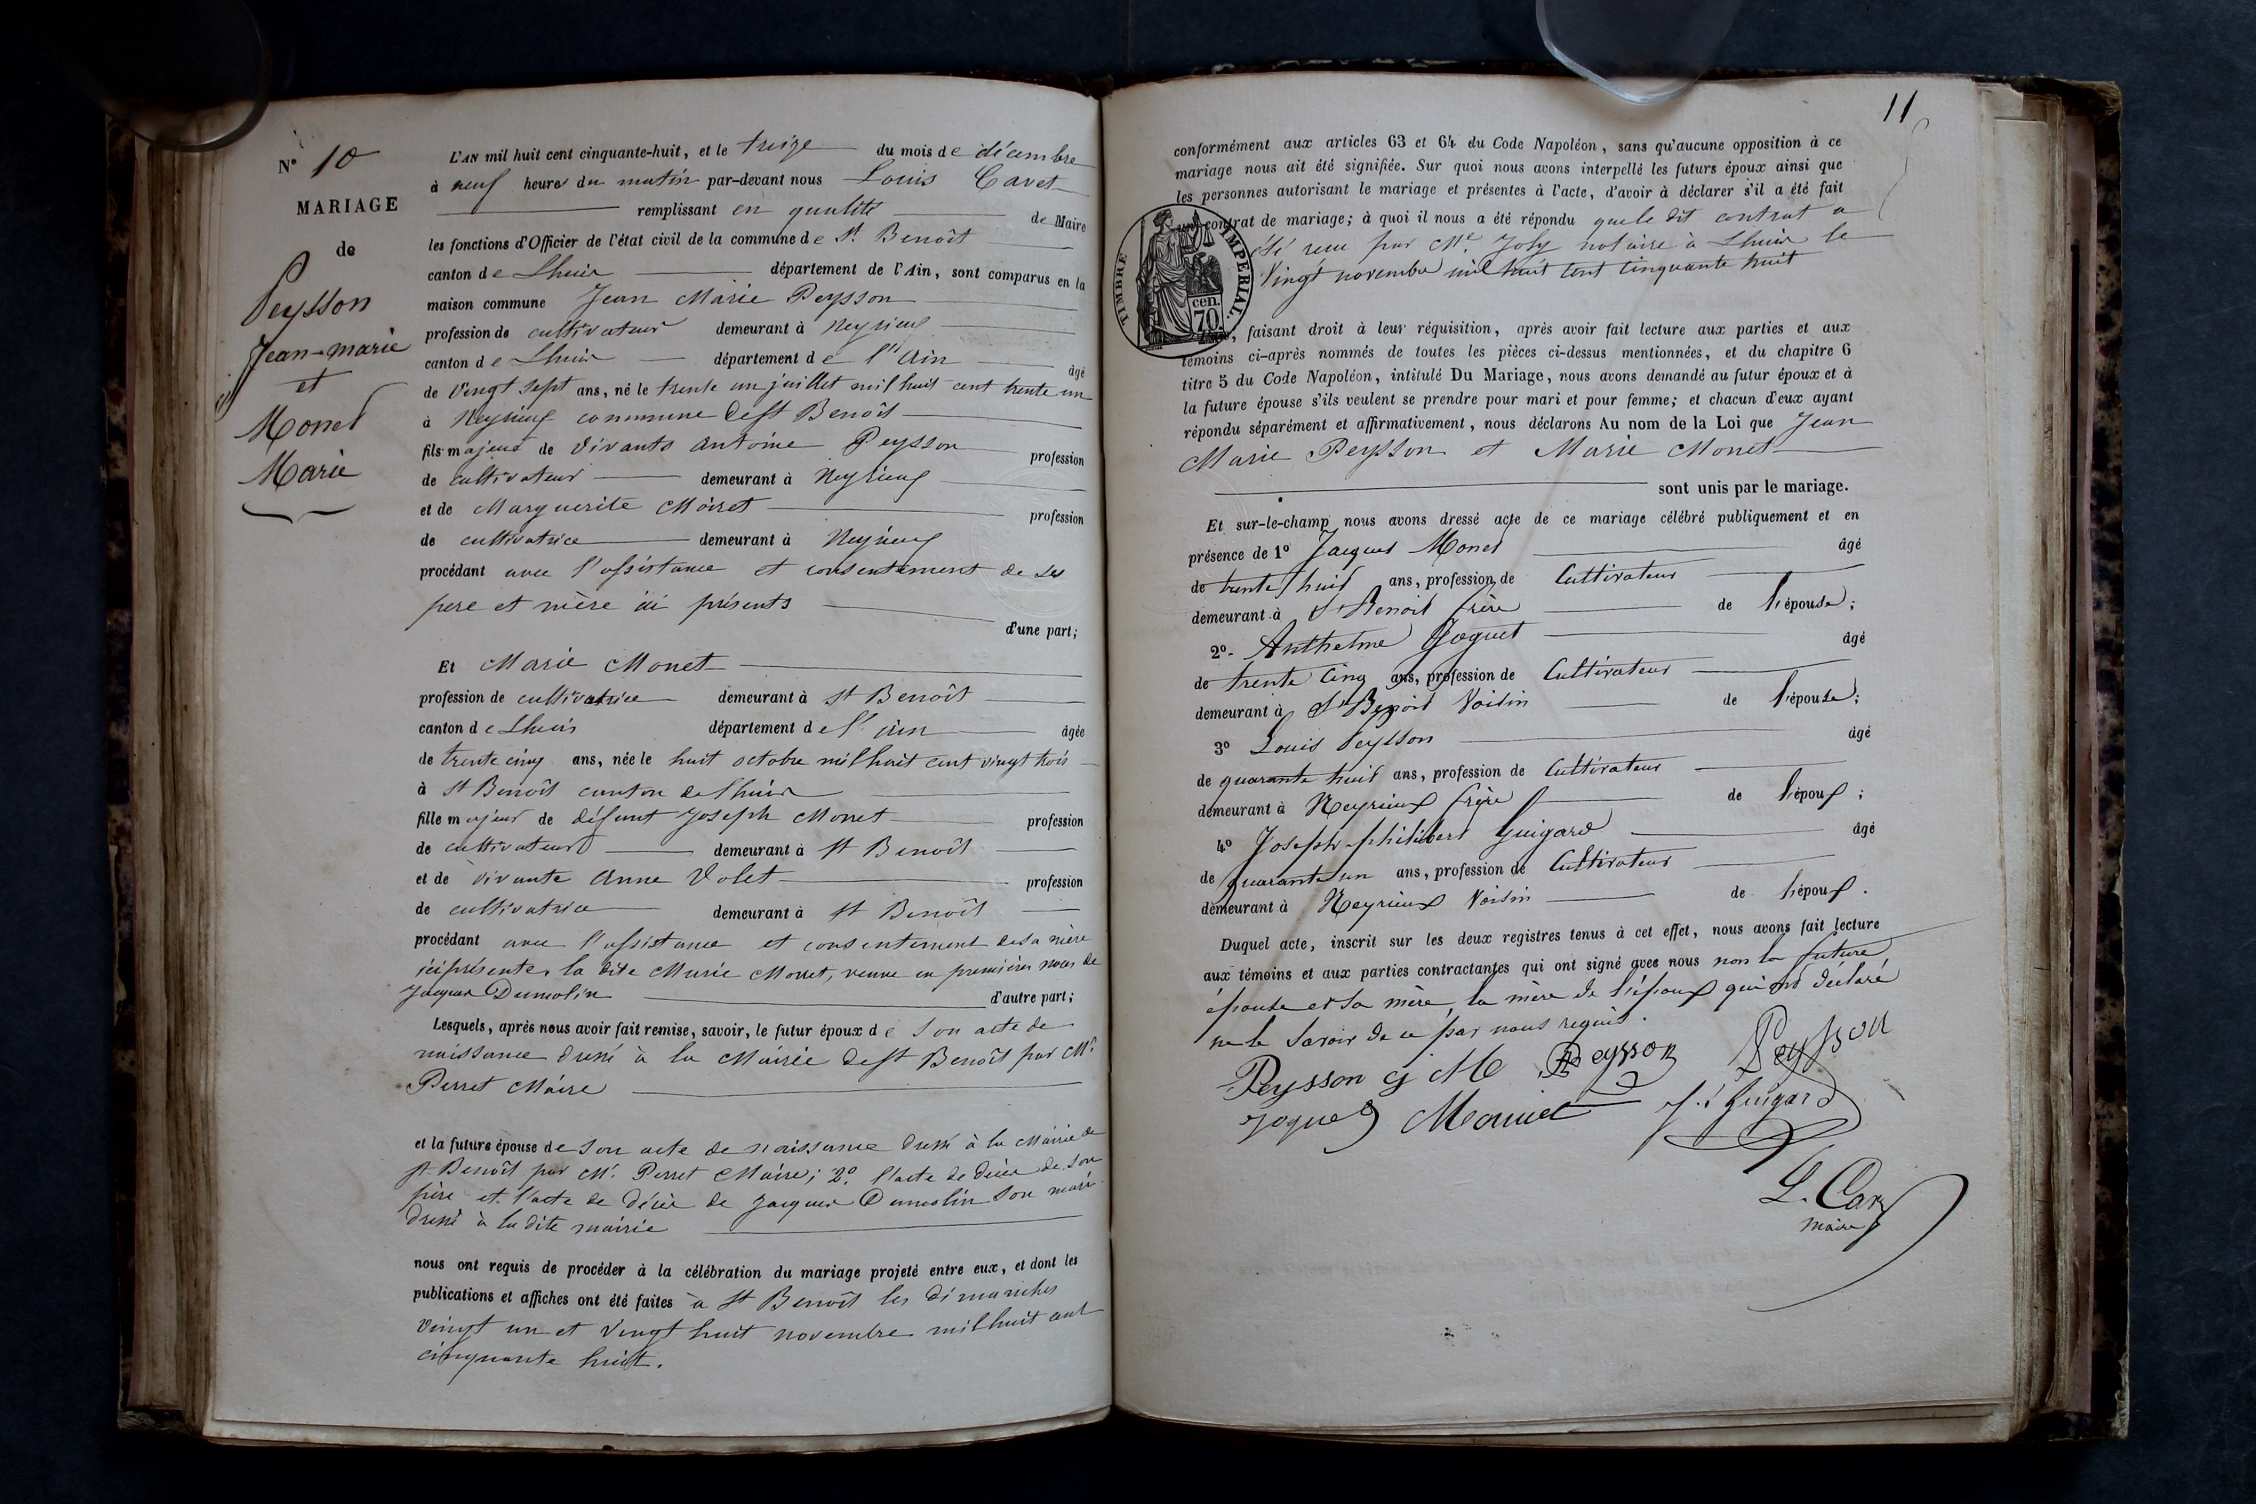 N° 10
MARIAGE
de
Peysson
Jean-marie
et
Monet
Marie
L'AN mil huit cent cinquante-huit, et le treize du mois de décembre
à neuf heures du matin par-devant nous Louis Cavet
remplissant en qualité de Maire
les fonctions d'Officier de l'état civil de la commune de St Benoît
canton de Lhuis département de l'Ain, sont comparus en la
maison commune Jean Marie Peysson
profession de cultivateur demeurant à Neyrieux
canton de Lhuis département de l'Ain âgé
de vingt sept ans, né le trente un juillet mil huit cent trente un
à Neyrieux commune de St Benoît
fils majeur de vivants antoine Peysson profession
de cultivateur demeurant à Neyrieux
et de Marguerite Moiret profession
de cultivatrice demeurant à Neyrieux
procédant avec l'assistance et consentement de ses
pere et mère ici présents
d'une part;
Et Marie Monet
profession de cultivatrice demeurant à St Benoît
canton de Lhuis département de l'ain âgée
de trente cinq ans, née le huit octobre mil huit cent vingt trois
à St Benoît canton de Lhuis
fille majeur de défunt Joseph Monet profession
de cultivateur demeurant à St Benoît
et de vivante anne Volet profession
de cultivatrice demeurant à St Benoît
procédant avec l'assistance et consentement de sa mère
ici présente, la dite Marie Monet, veuve en premières noces de
Jacques Dumolin d'autre part;
Lesquels, après nous avoir fait remise, savoir, le futur époux de son acte de
naissance dressé à la Mairie de St Benoît par Mr
Perret Maire
et la future épouse de son acte de naissance dressé à la Mairie de
St Benoît par Mr. Perret Maire; 2° l'acte de décès de son
père et l'acte de décès de Jacques Dumolin son mari
dressé à la dite mairie
nous ont requis de procéder à la célébration du mariage projeté entre eux, et dont les
publications et affiches ont été faites à St Benoît les dimanches
vingt un et vingt huit novembre mil huit cent
cinquante huit.
11
conformément aux articles 63 et 64 du Code Napoléon, sans qu'aucune opposition à ce
mariage nous ait été signifiée. Sur quoi nous avons interpellé les futurs époux ainsi que
les personnes autorisant le mariage et présentes à l'acte, d'avoir à déclarer s'il a été fait
un contrat de mariage; à quoi il nous a été répondu que le dit contrat a
été reçu par Me. Joly notaire à Lhuis le
vingt novembre mil huit cent cinquante huit
TIMBRE IMPERIAL.
70 cen.
faisant droit à leur réquisition, après avoir fait lecture aux parties et aux
témoins ci-après nommés de toutes les pièces ci-dessus mentionnées, et du chapitre 6
titre 5 du Code Napoléon, intitulé Du Mariage, nous avons demandé au futur époux et à
la future épouse s'ils veulent se prendre pour mari et pour femme; et chacun d'eux ayant
répondu séparément et affirmativement, nous déclarons Au nom de la Loi que Jean
Marie Peysson et Marie Monet
sont unis par le mariage.
Et sur-le-champ nous avons dressé acte de ce mariage célébré publiquement et en
présence de 1° Jacques Monet âgé
de trente huit ans, profession de Cultivateur
demeurant à St Benoit frère de l'épouse;
2°. Anthelme Joguet âgé
de trente cinq ans, profession de Cultivateur
demeurant à St Benoit Voisin de l'épouse;
3° Louis Peysson âgé
de quarante huit ans, profession de Cultivateur
demeurant à Neyrieux frère de l'époux;
4° Joseph philibert Guigard âgé
de quarante un ans, profession de Cultivateur
demeurant à Neyrieux Voisin de l'époux.
Duquel acte, inscrit sur les deux registres tenus à cet effet, nous avons fait lecture
aux témoins et aux parties contractantes qui ont signé avec nous non la future
épouse et sa mère, la mère de l'époux qui ont déclaré
ne le savoir de ce par nous requis.
Peysson j M Peysson Peysson
Joguet Mounet J. P Guigard
L. Cavet
maire